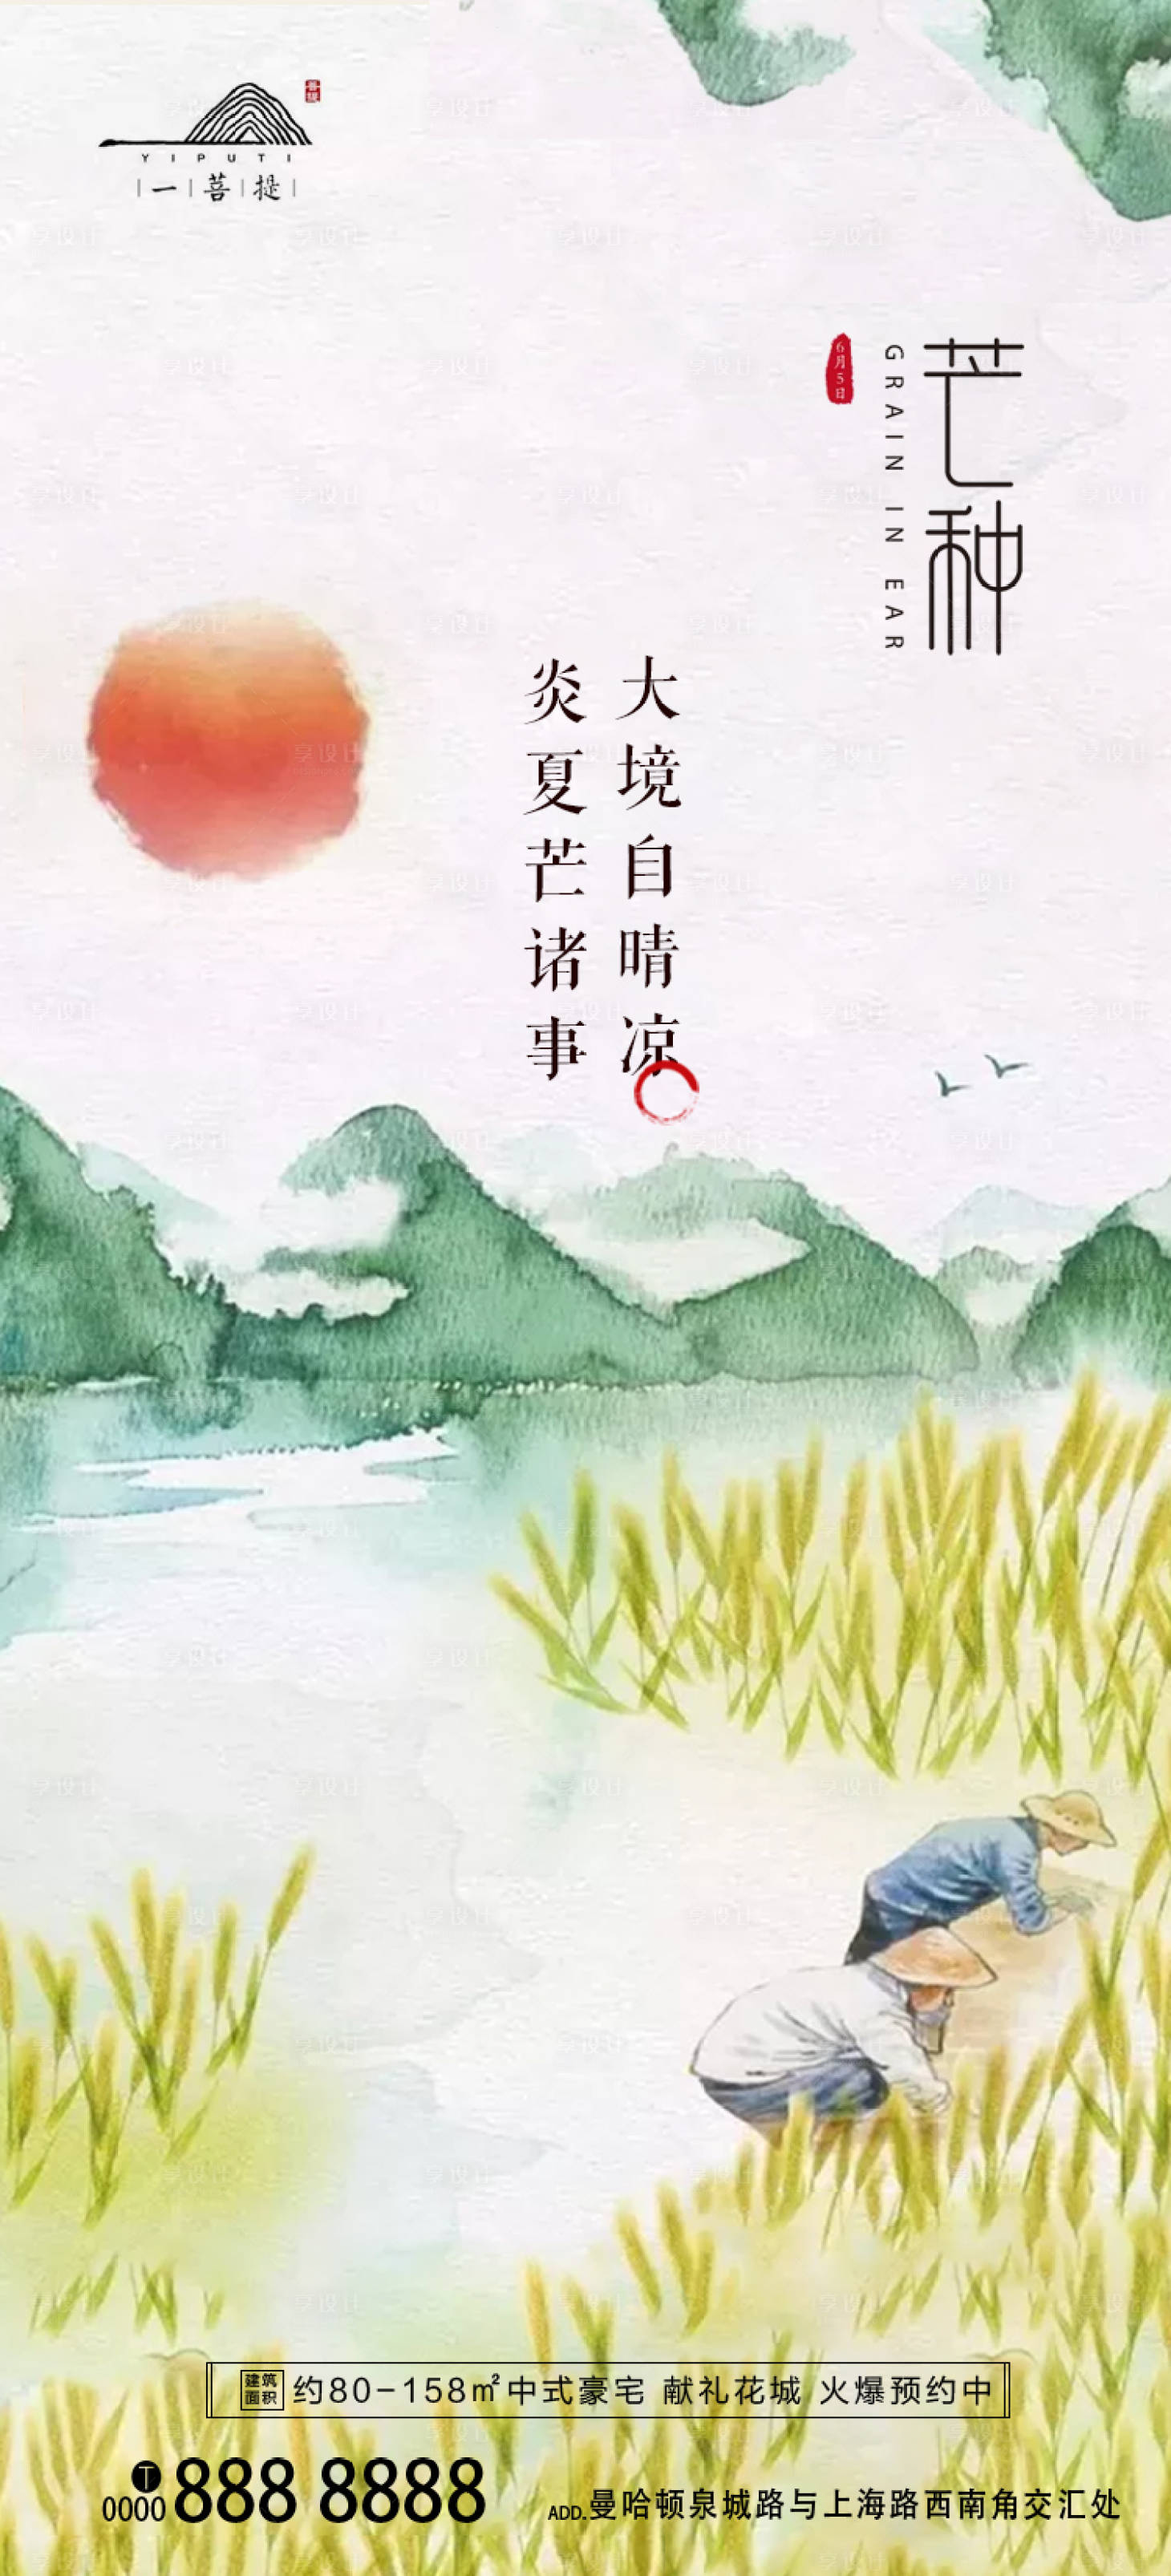 菩提
YIPUTI
一菩提
芒种
GRAIN IN EAR
6月5日
大境自晴凉
炎夏芒诸事
建筑面积 约80-158㎡中式豪宅 献礼花城 火爆预约中
T 0000 888 8888
ADD.曼哈顿泉城路与上海路西南角交汇处
享设计